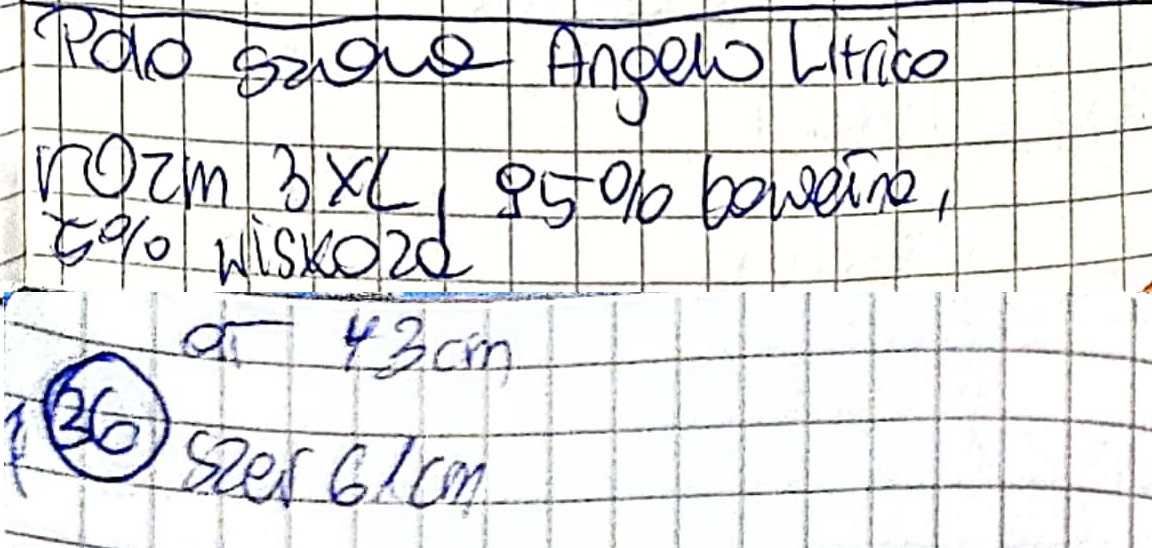 Polo szare Angelo Litrico
rozm 3XL, 95% bawełna,
5% wiskoza
43cm
36
szer 61cm